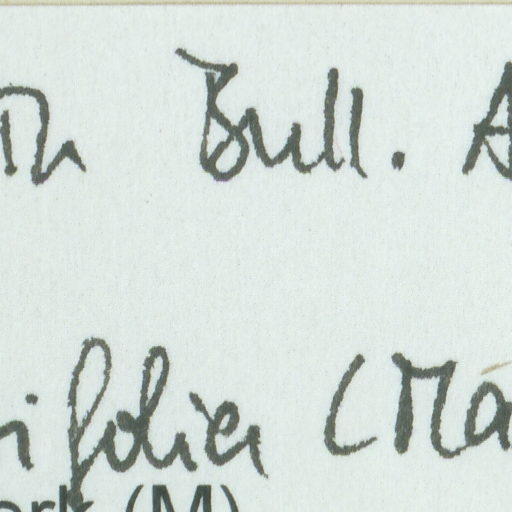 Bull. A
ifolia (Ma
ark (M)